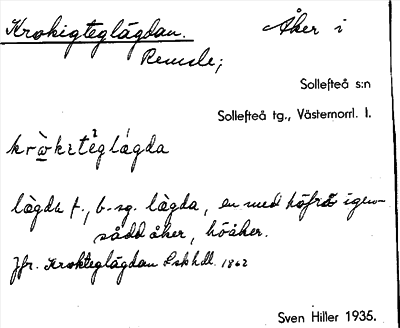 Krokigteglägdan. Åker i
Remsle;
Sollefteå s:n
Sollefteå tg., Västernorrl. l.
lägda f., b. sg. lägda, en med höfrö igen-
sådd åker, höåker.
Jfr. Krokteglägdan Lskhdl. 1862
Sven Hiller 1935.